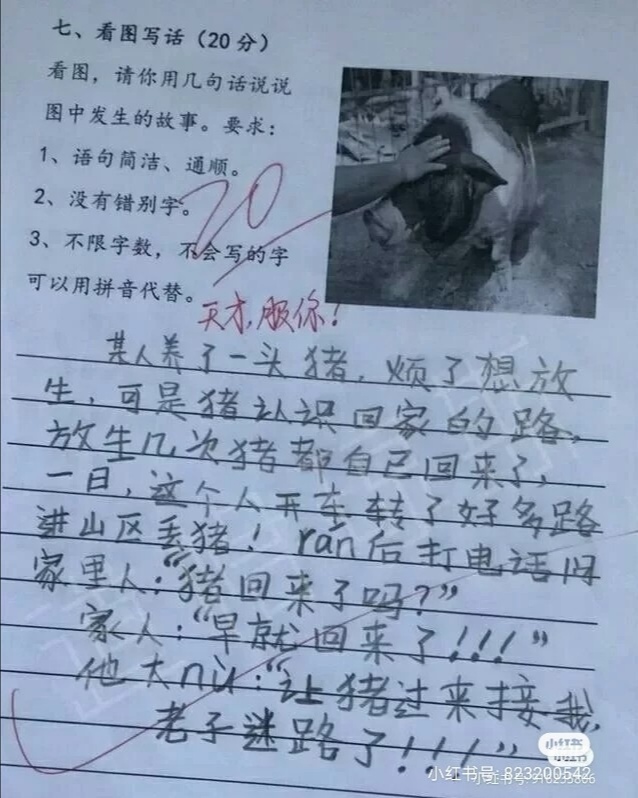 七、看图写话（20分）
看图，请你用几句话说说
图中发生的故事。要求：
1、语句简洁、通顺。
2、没有错别字。
3、不限字数，不会写的字
可以用拼音代替。
20
天才,服你!
某人养了一头猪，烦了想放
生，可是猪认识回家的路，
放生几次猪都自己回来了，
一日，这个人开车转了好多路
进山区丢猪！rán后打电话问
家里人：“猪回来了吗？”
家人：“早就回来了！！！”
他大nù：“让猪过来接我，
老子迷路了！！！”
小红书
小红书号：823200542